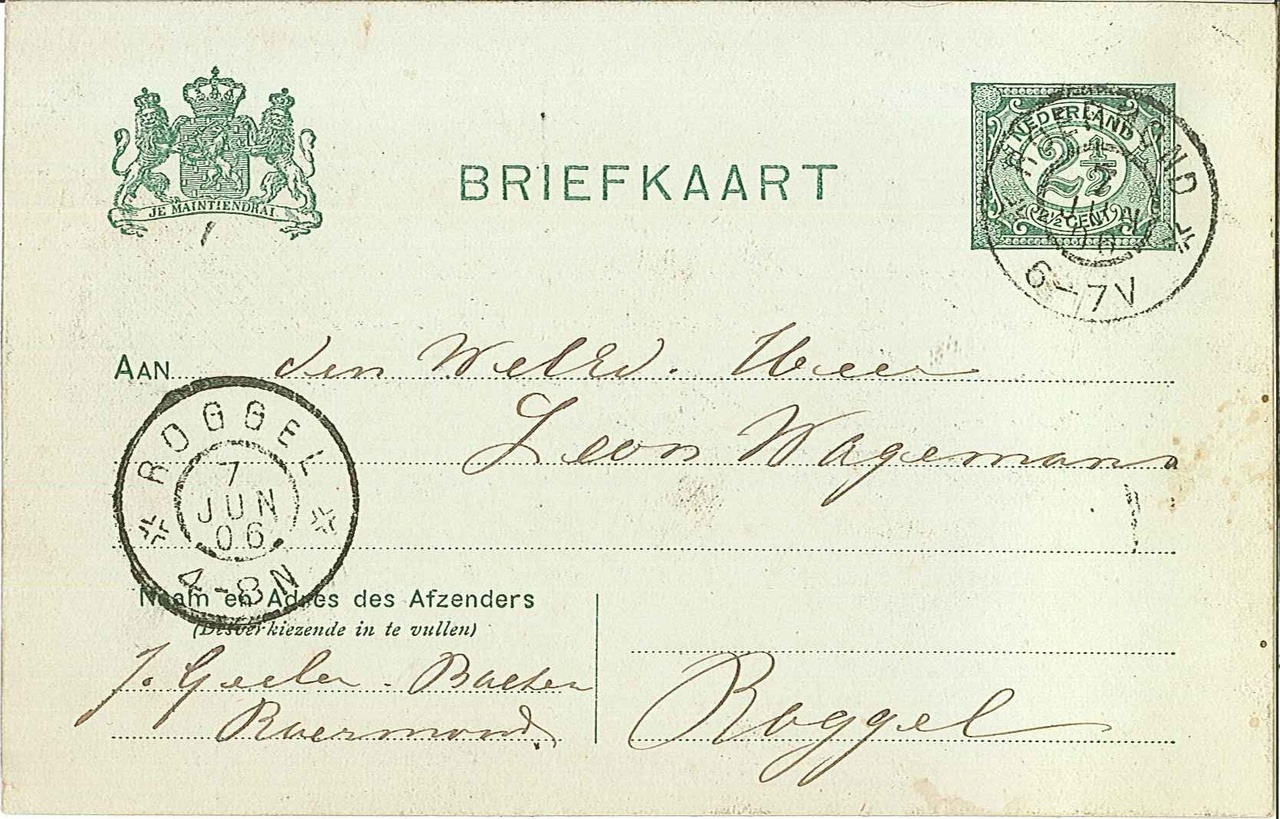 JE MAINTIENDRAI
BRIEFKAART
NEDERLAND
2½
2½ CENT
6-7V
AAN den WelEd. Heer
Leon Wagemans
ROGGEL
7
JUN
06
4-8N
Naam en Adres des Afzenders
(Desverkiezende in te vullen)
J. Geelen-Baeten
Roermond
Roggel